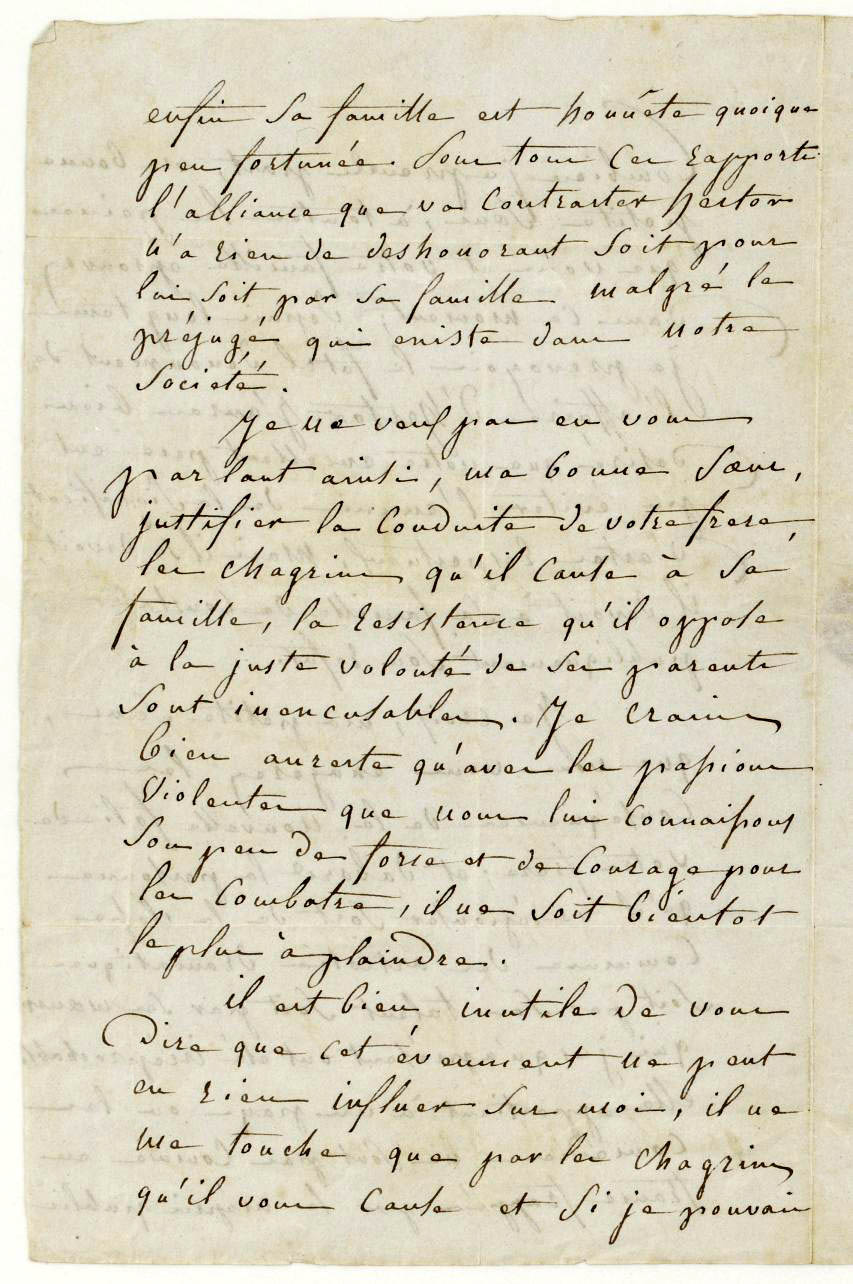 enfin sa famille est honnête quoique
peu fortunée. Sous tous ces rapports
l'alliance que va contracter hector
n'a rien de deshonorant soit pour
lui soit par sa famille malgré le
préjugé qui existe dans notre
société.
Je ne veux pas en vous
parlant ainsi, ma bonne Sœur,
justifier la conduite de votre frere,
les chagrins qu'il cause à sa
famille, la resistence qu'il oppose
à la juste volonté de ses parents
sont inexcusables. Je crains
bien aureste qu'avec les passions
violentes que nous lui connaissons
son peu de force et de courage pour
les combatre, il ne soit bientot
le plus à plaindre.
il est bien inutile de vous
dire que cet évenement ne peut
en rien influer sur moi, il ne
me touche que par les chagrins
qu'il vous cause et si je pouvais